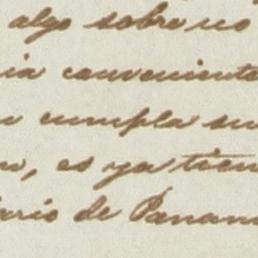 algo sobre no
ia conveniente
cumpla su
es ya tien
ario de Panam